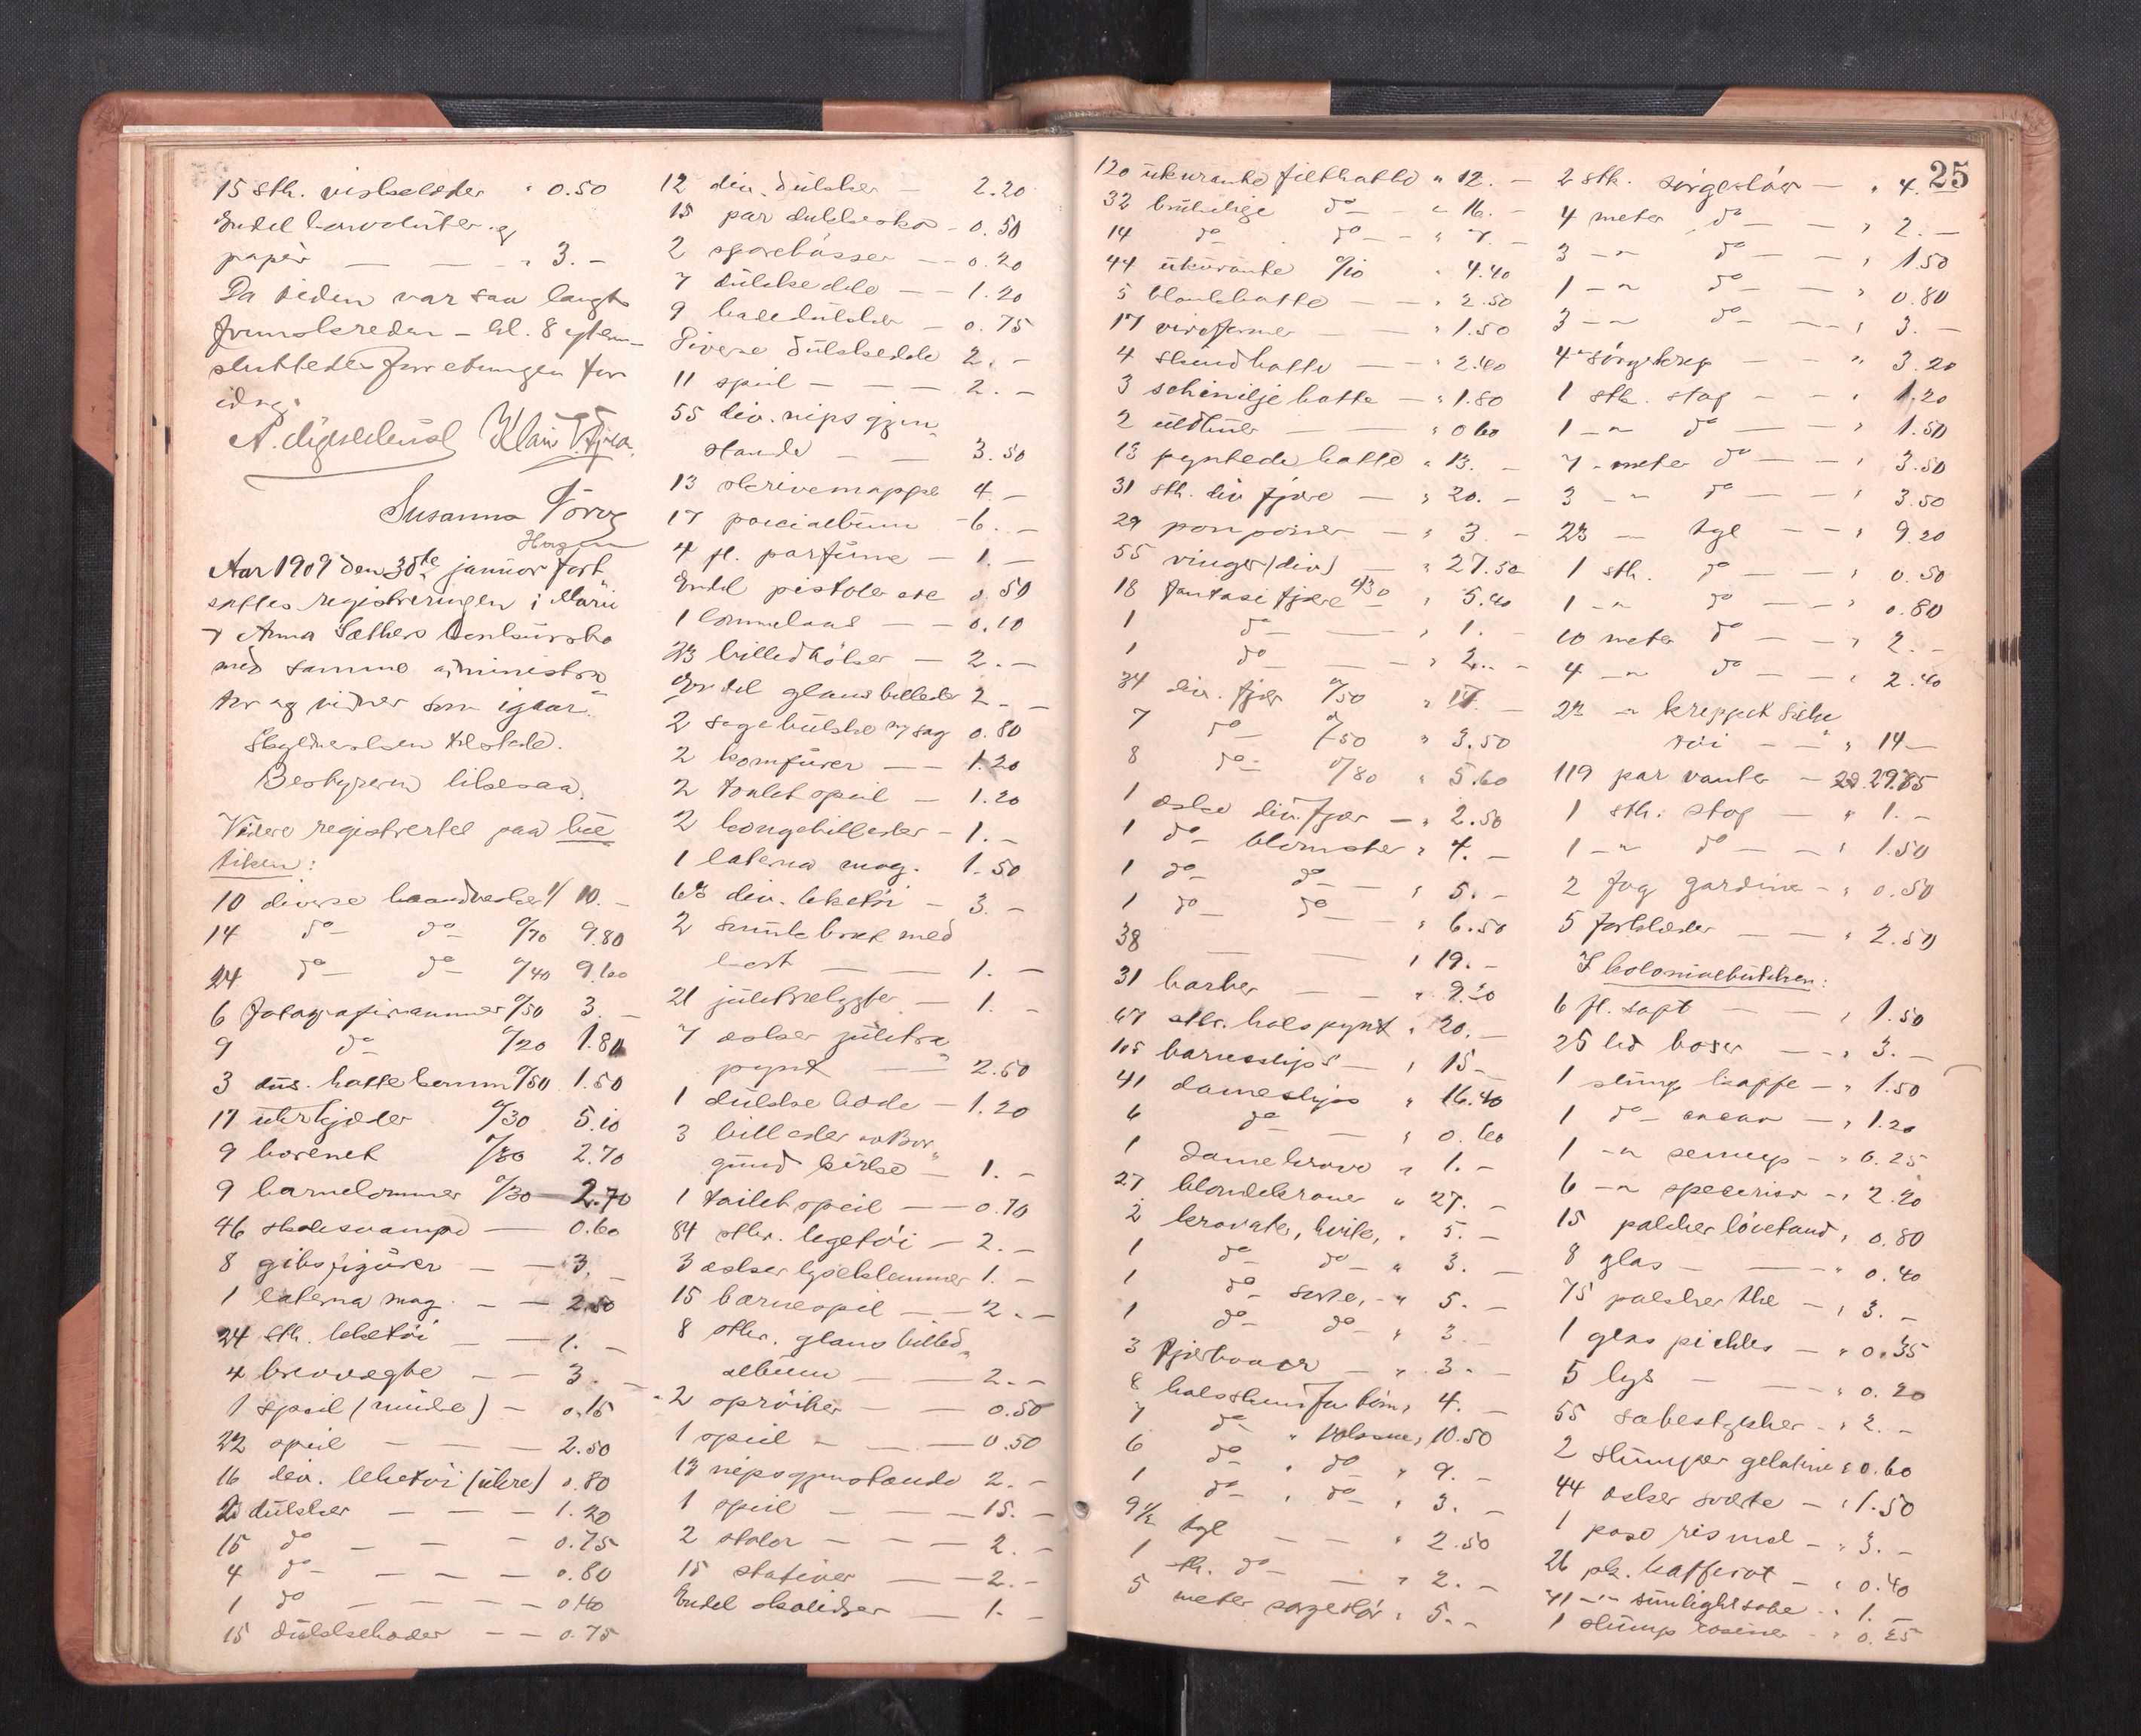 15 stk. viskelæder " 0.50
Endel konvoluter og
papir — — " 3. –
Da tiden var saa langt
fremskreden – kl. 8 eftm –
sluttedes forretningen for
idag.
Susanna Tørvg
Hagen
Aar 1909 den 30te januar fort
sattes registreringen i Marie
& Anna Sæthers konkursbo
med samme administra
tor og vidner som igaar.
Skyldnersken tilstede.
Bestyreren likesaa.
Videre registrertes paa bu
tiken:
10 diverse haandvesker 1/ 10. –
14 do – do – 0/70 9.80
24 do – do – 0/40 9.60
6 fotografirammer 0/50 3. –
9 do – 0/20 1.80
3 dus. hattekemmer 0/50 1.50
17 uhrkjæder 0/30 5.10
9 korenet 2.70
9 barnelommer 0/30 2.70
46 skolesvampe — 0.60
8 gibsfigurer — — 3. –
1 laterna mag. — — 2.50
24 stk. leketøi — — 1. –
4 brevvegte — — 3. –
1 speil (mindre) – 0.15
22 speil — — — 2.50
16 div. leketøi (uhre) 0.80
20 dukker — — — 1.20
15 do — — — 0.75
4 do — — — — 0.80
1 do — — — — 0.40
15 dukkehoder — — 0.75
12 div. dukker — 2.20
15 par dukkesko – 0.50
2 sparebøsser — — 0.20
7 dukkedele — — 1.20
9 badedukker — 0.75
Diverse dukkedele 2. –
11 speil — — — 2. –
55 div. nipsgjen
stande — — 3.50
13 skrivemapper 4. –
17 poesialbum – 6. –
4 fl. parfume — 1. –
Endel pistoler etc 0.50
1 lommelaas — — 0.10
23 billedbøker — 2. –
Endel glansbilleder 2. –
2 sagabukke og sag 0.80
2 komfurer — — 1.20
2 toiletspeil — 1.20
2 kongebilleder – 1. –
1 laterna mag. 1.50
68 div. leketøi – 3. –
2 smulebræt med
kost — — 1. –
21 juletrelygter — 1. –
7 æsker juletræ
pynt — — 2.50
1 dukkehode — 1.20
3 billeder av Bor
gund kirke — 1. –
1 toiletspeil — — 0.70
84 stkr. legetøi — 2. –
3 æsker lyseklemmer 1. –
15 barnespil — — 2. –
8 stkr. glansbilled
album — — 2. –
2 sprøiter — — 0.50
1 speil — — — 0.50
13 nipsgjenstande 2. –
1 speil — — — 15. –
2 stoler — — — 2. –
15 stativer — — 2. –
Endel skolidser — 1. –
25
120 ukurante filthatte " 12. –
32 brukelige do — " 16. –
14 do do — " 7. –
44 ukurante 0/10 " 4.40
5 blankhatte — — " 2.50
17 vireformer — " 1.50
4 skindhatte — " 2.40
3 schenilje hatte — " 1.80
2 uldluer — " 0.60
13 pyntede hatte " 13. –
31 stk. div fjære — " 20. –
29 ponponer — " 3. –
55 vinger (div) — " 27.50
18 fantasi fjære 0/30 " 5.40
1 do — " 1. –
1 do — — " 2. –
34 div. fjær 0/50 " 17. –
7 do — 0/50 " 3.50
8 do — 0/80 " 5.60
1 æske div. fjær — " 2.50
1 do — blomster " 4. –
1 do — do — " 5. –
1 do — do — " 6.50
38 — " 19. –
31 barber — — " 9.30
67 stkr. halspynt " 20. –
105 barneslips — " 15 –
41 dameslips " 16.40
6 do — " 0.60
1 damekrave " 1. –
27 blondekraver " 27. –
2 kravater, hvite, " 5. –
1 do — do — " 3. –
1 do — sorte, — " 5. –
1 do — do — " 3 –
3 fjærboaer — " 3. –
8 halsskind for børn, 4. –
7 do — " voksne, 10.50
6 do " do " 9. –
1 do — " do — " 3. –
9 1/2 tyl — — " 2.50
1 stk. do — — " 2. –
5 meter sørgeslør " 5. –
2 stk. sørgeslør — " 4. –
4 meter do — — " 2. –
3 – " do — " 1.50
1 – " do — " 0.80
3 – " do — — " 3. –
4 " sørgekrep — — " 3.20
1 stk. stof — — " 1.20
1 – " do — — " 1.50
7 – meter do — — " 3.50
3 – " do — — " 3.50
23 — tyl — — " 9.20
1 stk. do — — " 0.50
1 – " do — — " 0.80
10 meter do — — " 2. –
4 – " do — " 2.40
22 – " kreppet silke
tøi — — " 14 –
119 par vanter — 29.75
1 stk. stof — " 1. –
1 – " do — — " 1.50
2 fag gardiner — " 0.50
5 forklæder — — " 2.50
I kolonialbutikken:
6 fl. saft — — " 1.50
25 lod boser — — " 3. –
1 slump kaffe — " 1.50
1 do – cacao — " 1.20
1 – " sennep — " 0.25
6 – " specerier — " 2.20
15 pakker løvetand " 0.80
8 glas — — " 0.40
75 pakker the — " 3. –
1 glas pickles — " 0.35
5 lys — — " 0.20
55 sæbestykker — " 2. –
2 slumper gelatine " 0.60
44 æsker sværte — " 1.50
1 pose rismel — " 3. –
26 pk. kafferot — " 0.40
41 – " – sunlightsæbe " 1. –
1 slump rosiner — " 0.25